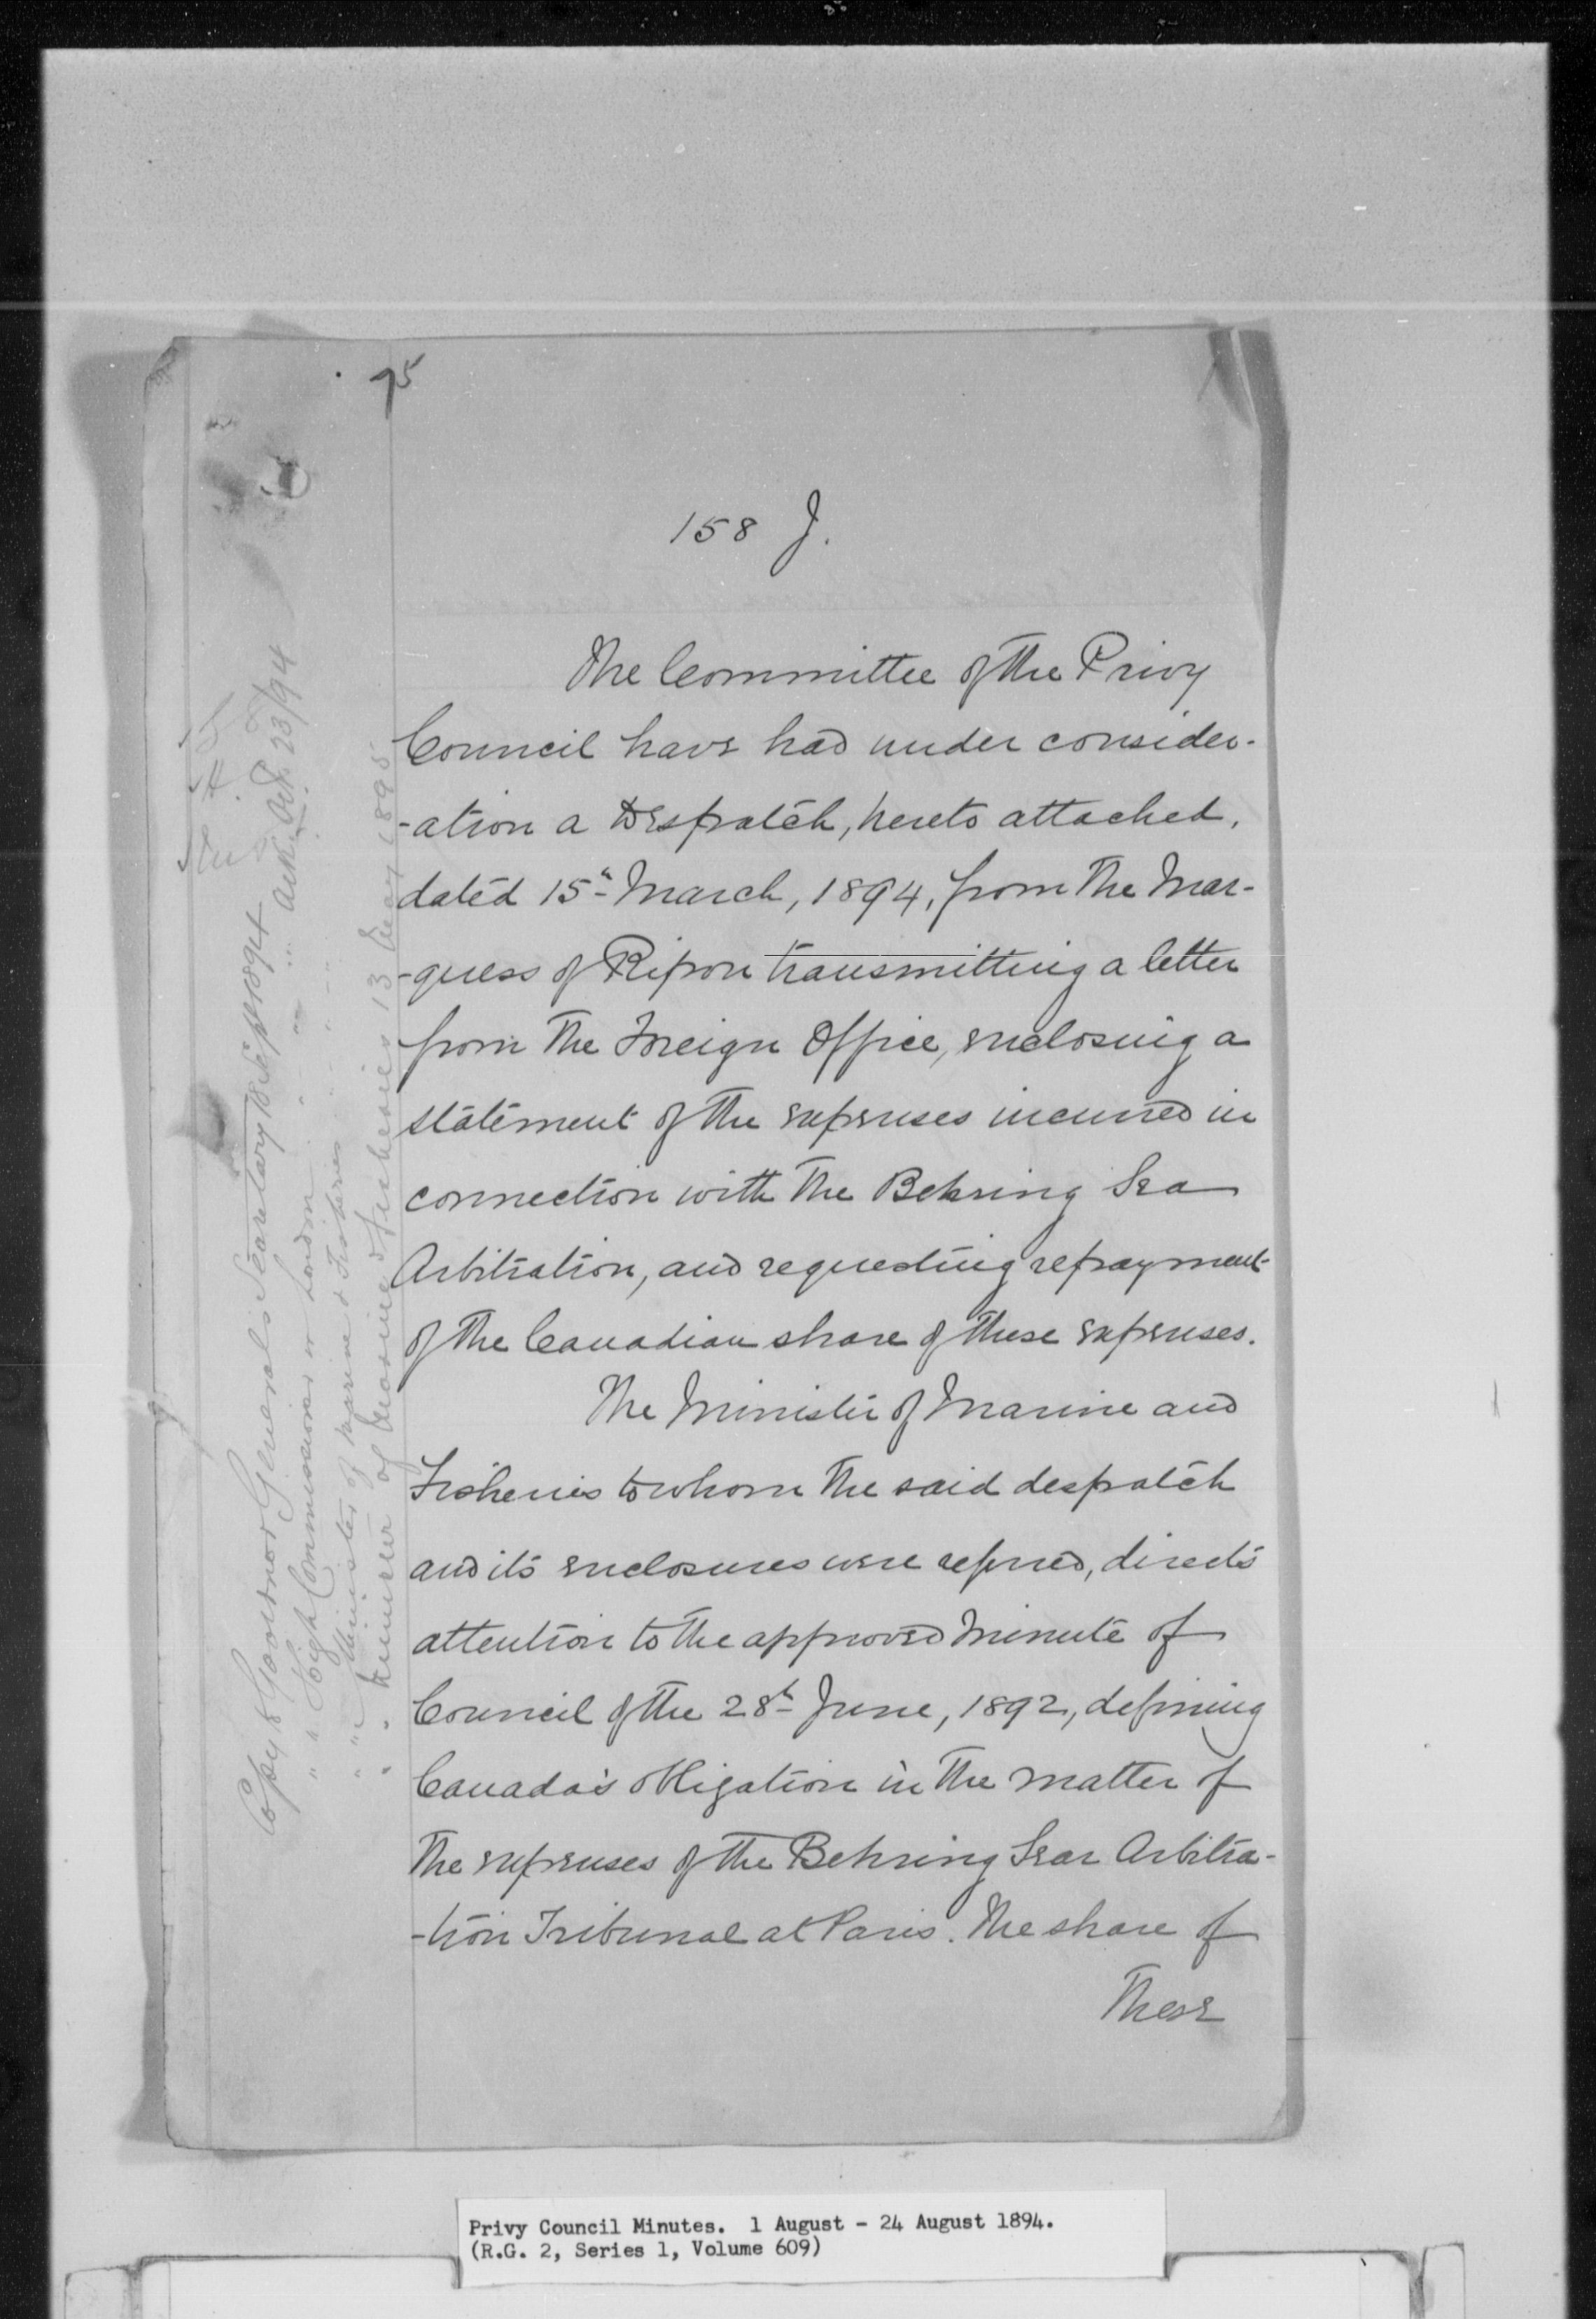 95
158 J.
The Committee of the Privy
Council have had under consider-
-ation a Despatch, hereto attached,
dated 15th March, 1894, from the Mar-
-quess of Ripon transmitting a letter
from the Foreign Office, enclosing a
statement of the expenses incurred in
connection with the Behring Sea
Arbitration, and requesting repayment
of the Canadian share of these expenses.
The Minister of Marine and
Fisheries to whom the said despatch
and its enclosures were referred, directs
attention to the approved Minute of
Council of the 28th June, 1892, defining
Canada's obligation in the matter of
the expenses of the Behring Sea Arbitra-
-tion Tribunal at Paris. The share of
These
Copy to Governor General's Secretary 18 Sept 1894
" " High Commissioner London
" " Minister of Marine & Fisheries
" " of Marine & Fisheries 13 1895
Privy Council Minutes. 1 August - 24 August 1894.
(R.G. 2, Series 1, Volume 609)